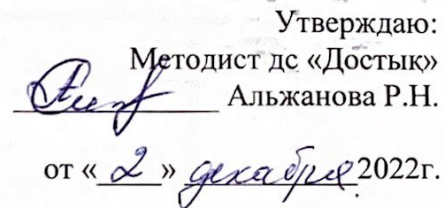 Утверждаю:
Методист дс «Достық»
Альжанова Р.Н.
от « 2 » декабря 2022г.